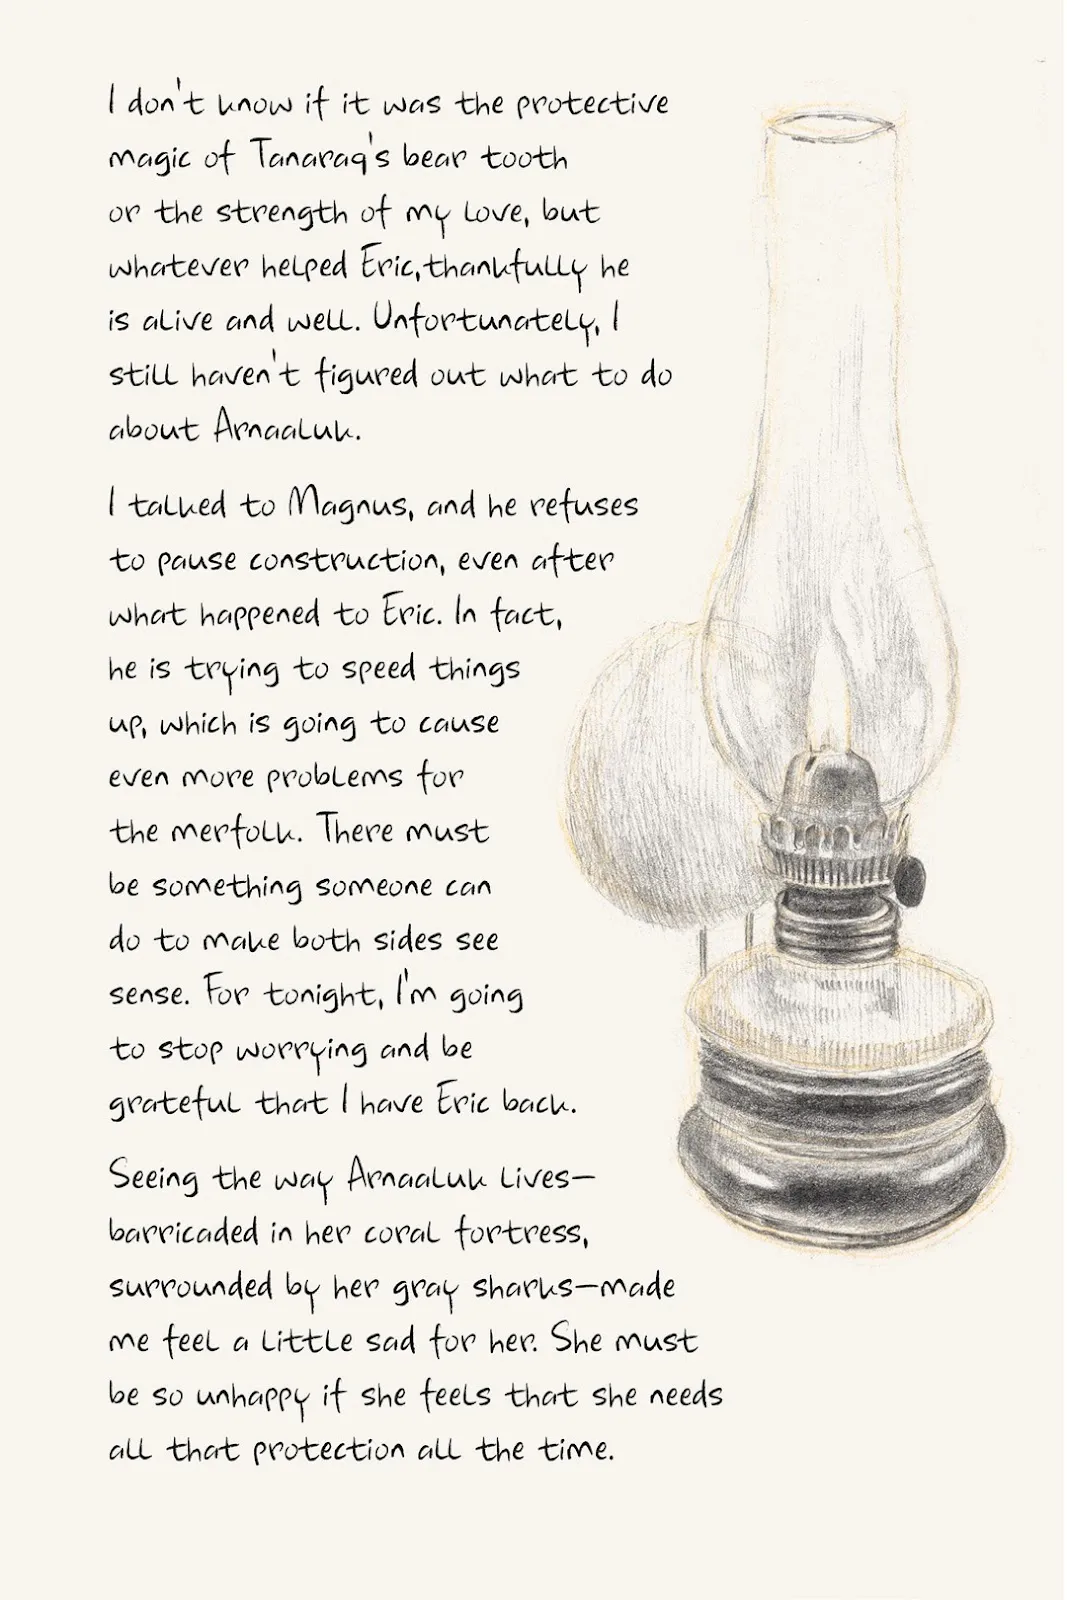 I don't know if it was the protective
magic of Tanaraq's bear tooth
or the strength of my love, but
whatever helped Eric,thankfully he
is alive and well. Unfortunately, I
still haven't figured out what to do
about Arnaaluk.
I talked to Magnus, and he refuses
to pause construction, even after
what happened to Eric. In fact,
he is trying to speed things
up, which is going to cause
even more problems for
the merfolk. There must
be something someone can
do to make both sides see
sense. For tonight, I'm going
to stop worrying and be
grateful that I have Eric back.
Seeing the way Arnaaluk lives—
barricaded in her coral fortress,
surrounded by her gray sharks—made
me feel a little sad for her. She must
be so unhappy if she feels that she needs
all that protection all the time.